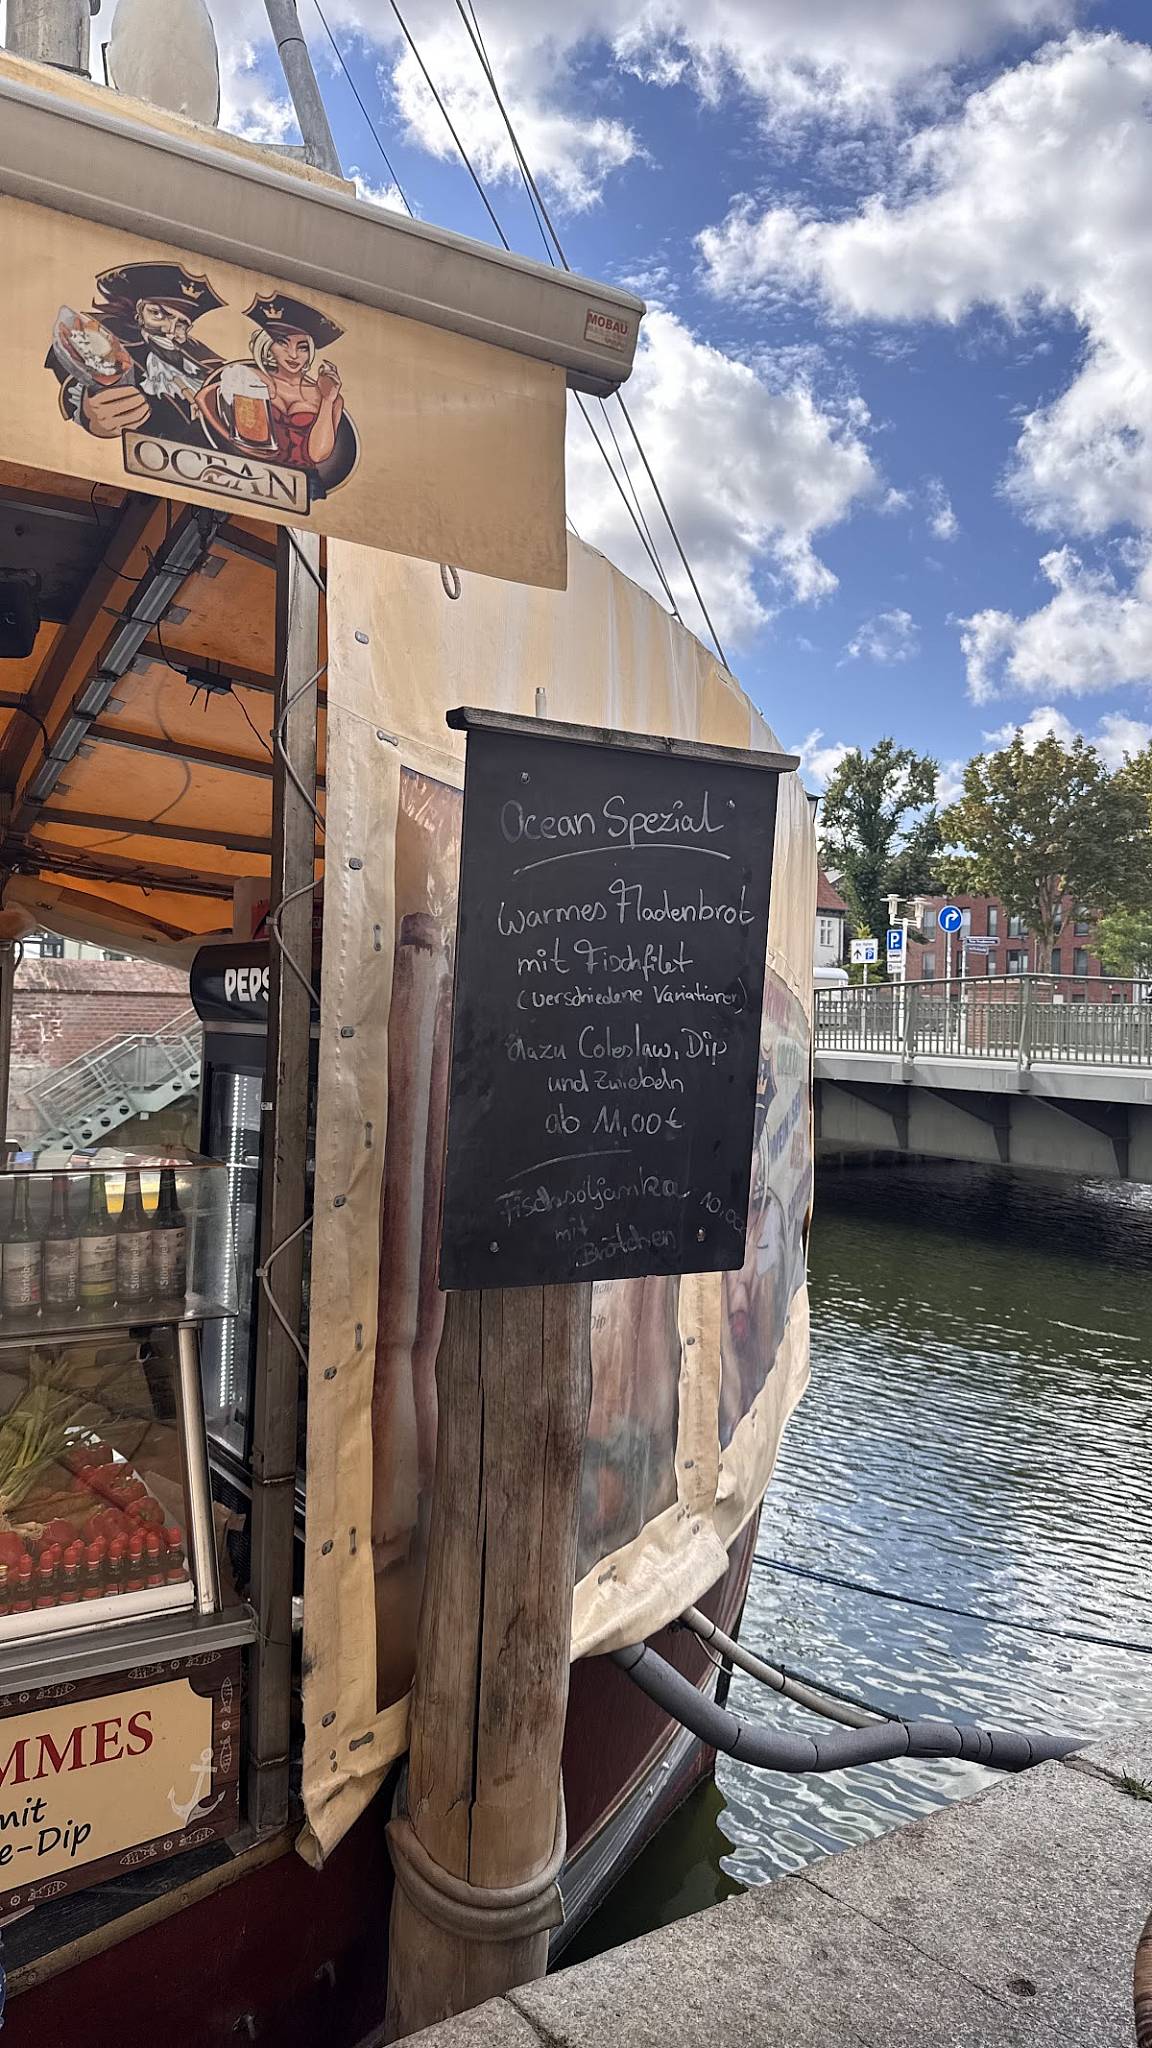 MOBAU
OCEAN
Ocean Spezial
Warmes Fladenbrot
mit Fischfilet
(verschiedene Variationen)
dazu Coleslaw, Dip
und Zwiebeln
ab 11,00€
Fischsoljanka 10,00
mit
Brötchen
PEPS
P
Dip
MMES
mit
e-Dip